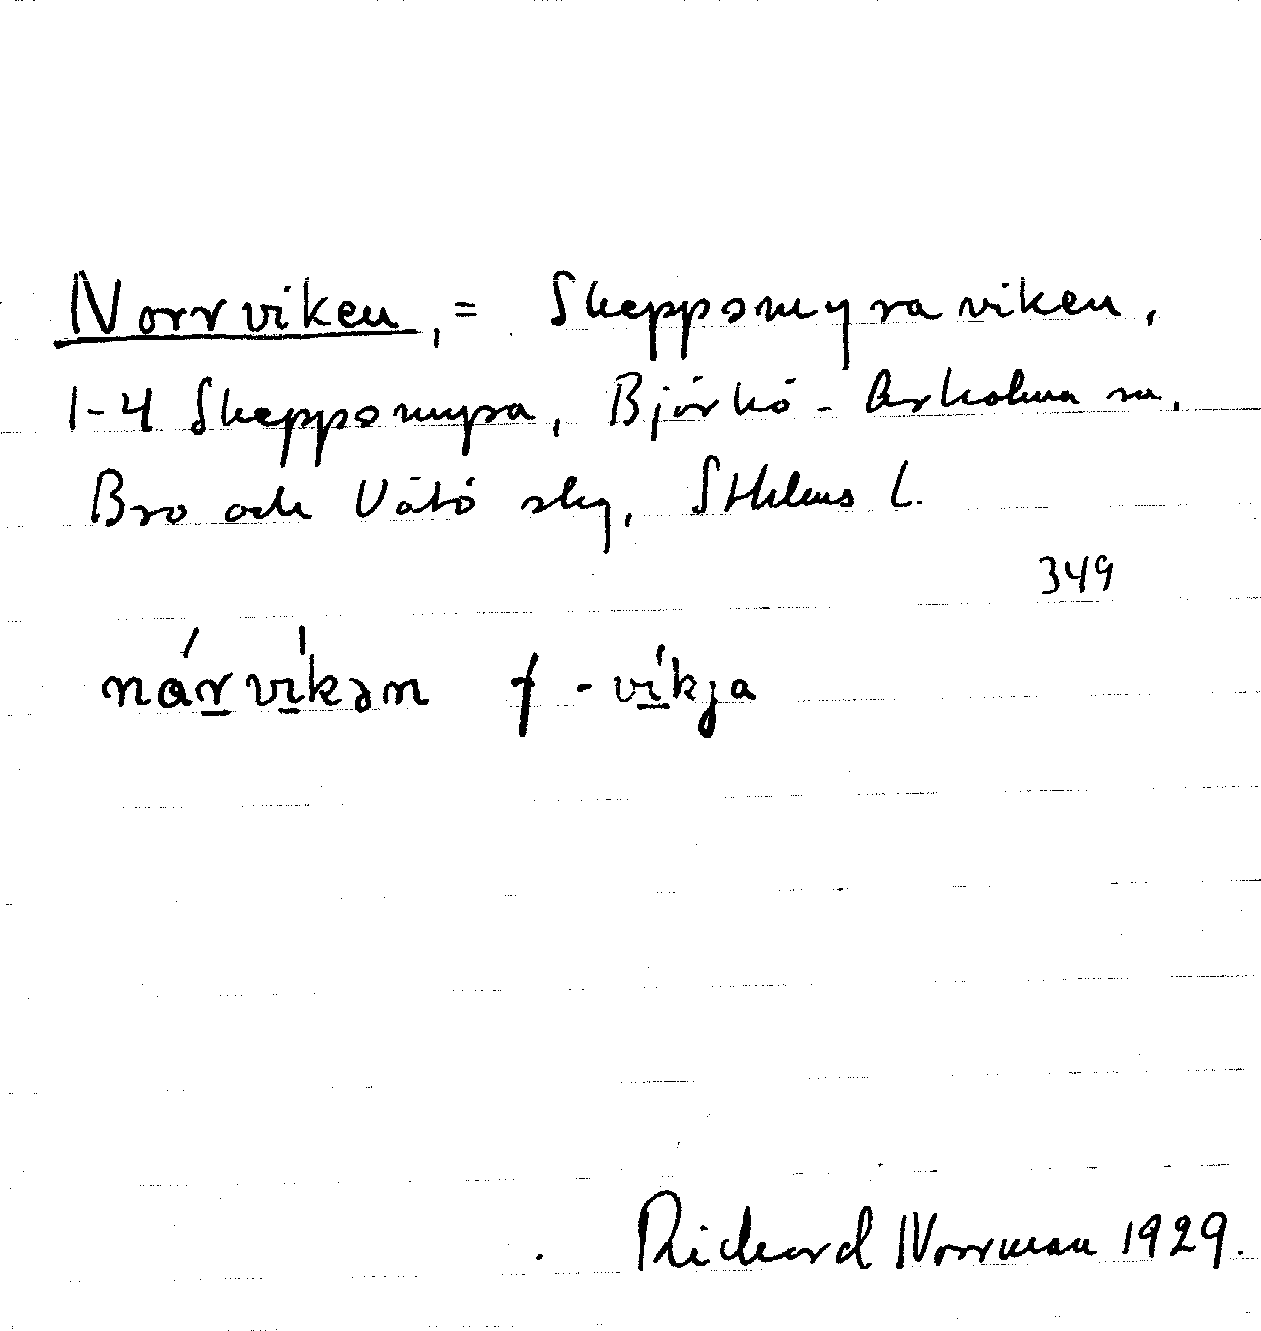 Norrviken, = Skeppsmyraviken,
1-4 Skeppsmyra, Björkö-Arholma sn,
Bro och Vätö skg, Sthlms L.
349
nárvíkən f -víkja
Rickard Norrman 1929.